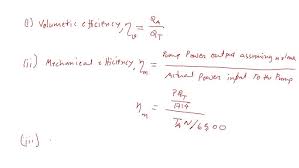 (i) Volumetric efficiency, η_v = Q_A / Q_T
(ii) Mechanical efficiency, η_m = Pump Power output assuming no / Actual Power input to the Pump
η_m = (PQ_T / 1714) / (T_A N / 63000)
(iii)